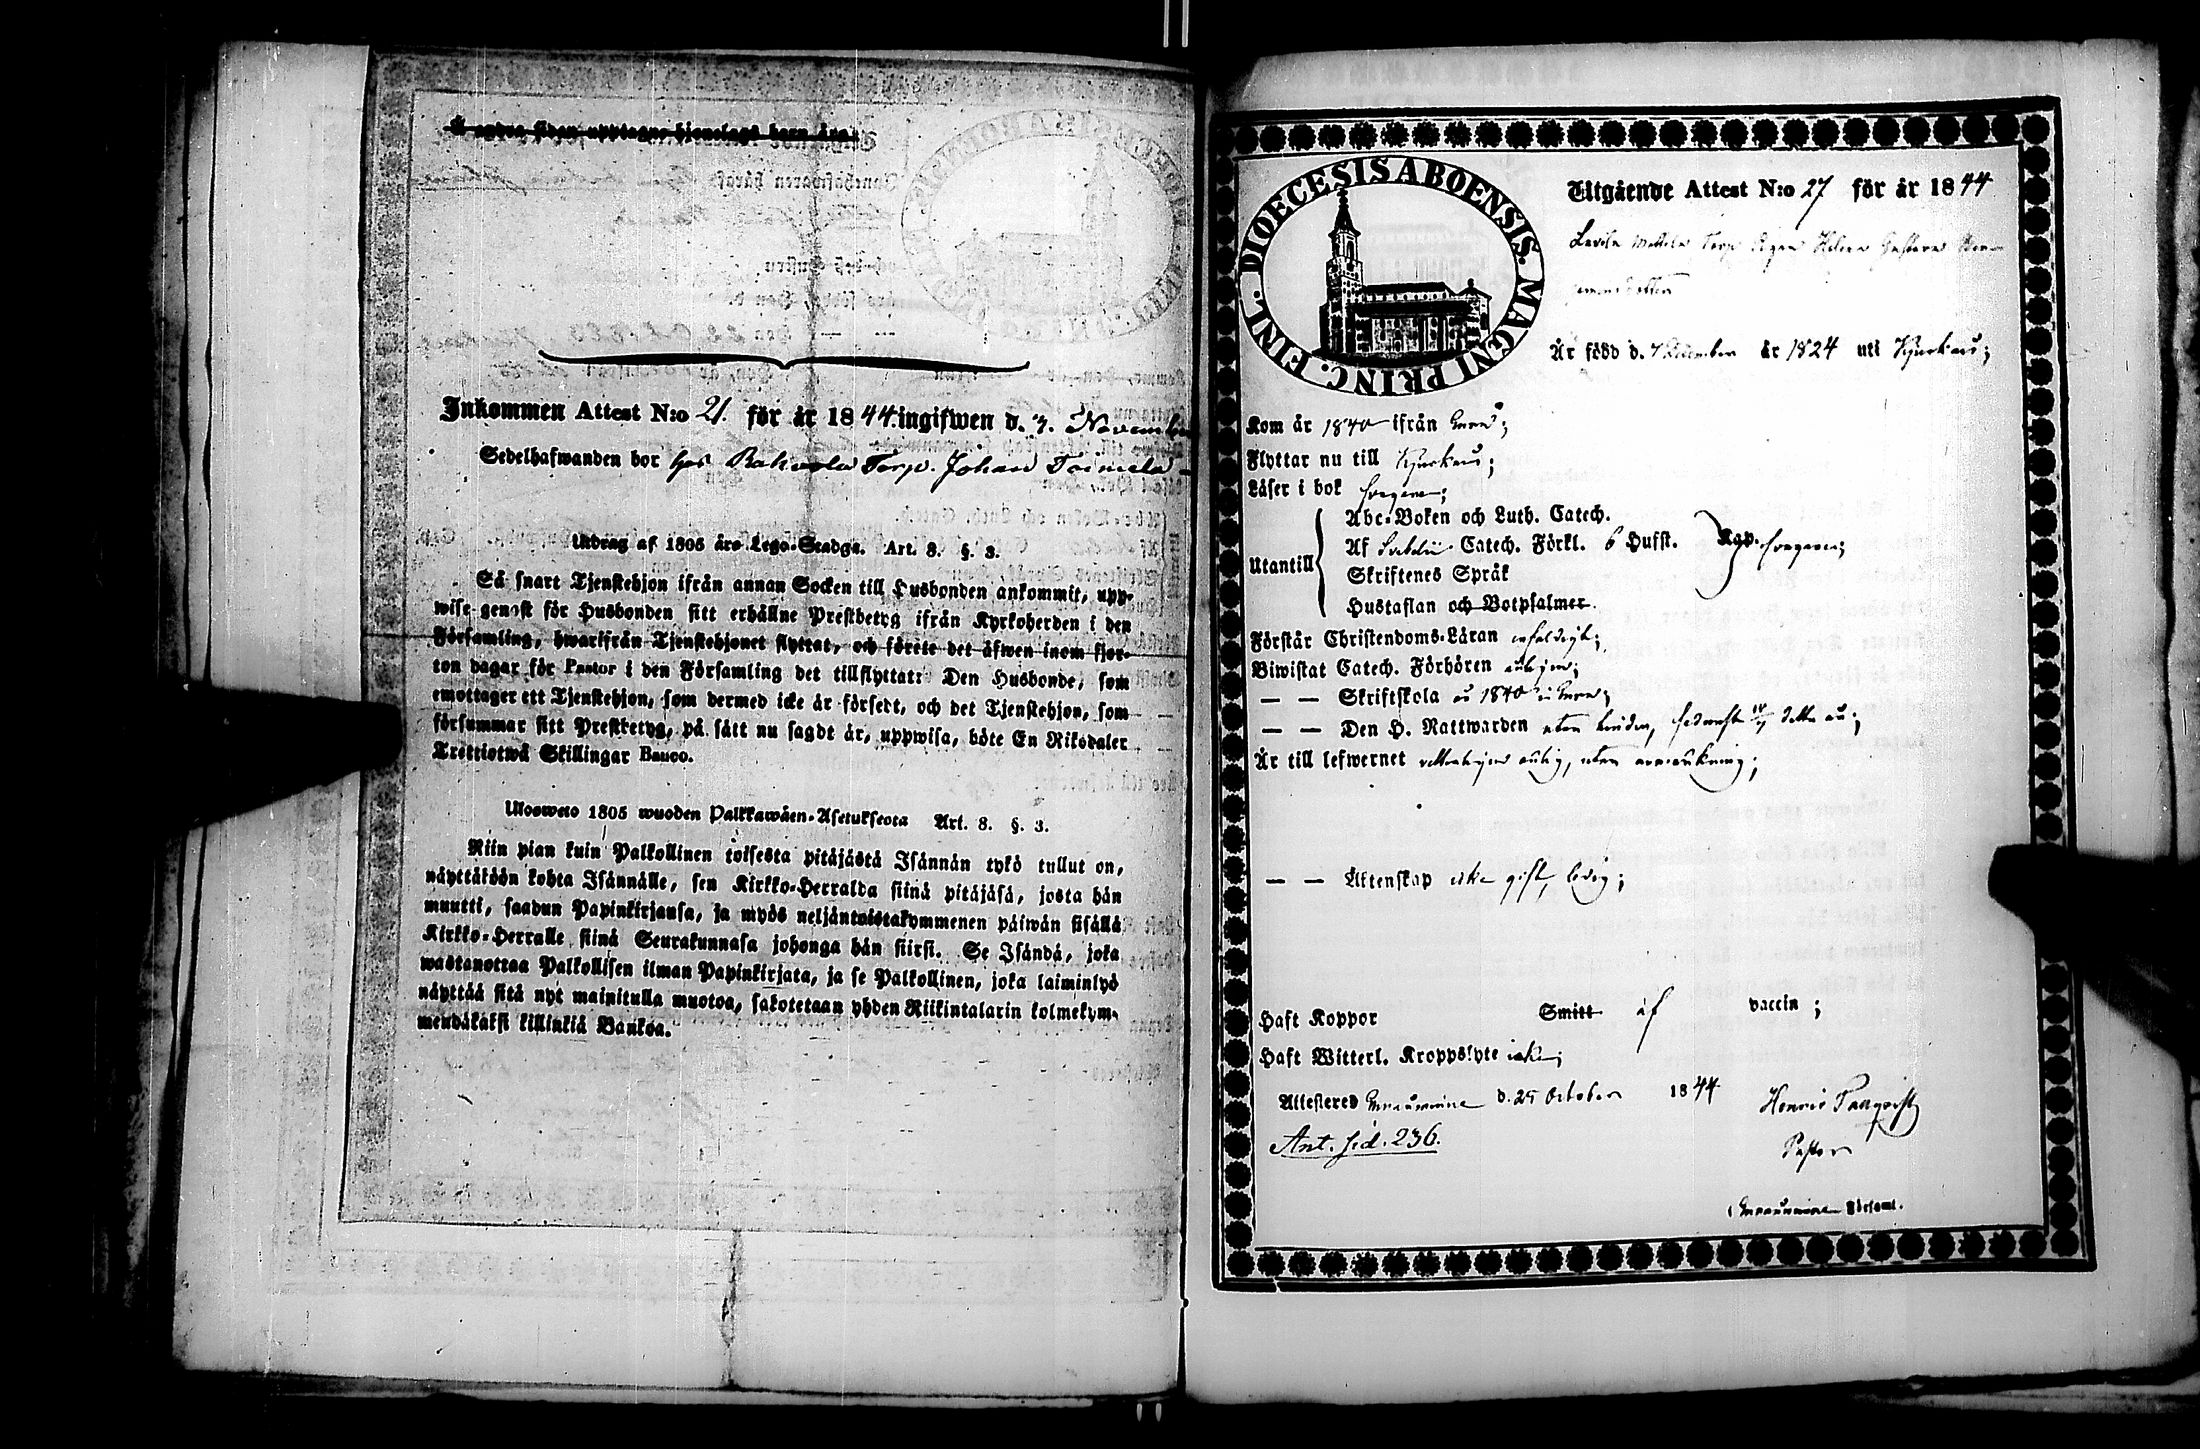 Å andra sidan upptagne hjonelags barn äro:
Inkommen Attest N:o 21. för år 1844. ingifwen d. 4. November
Sedelhafwanden bor hos Torp. Johan
Utdrag af 1805 års Lego-Stadga. Art. 8. §. 3.
Så snart Tjenstehjon ifrån annan Socken till Husbonden ankommit, upp-
wise genast för Husbonden sitt erhållne Prestbetyg ifrån Kyrkoherden i den
Församling, hwarifrån Tjenstehjonet flyttat, och förete det äfwen inom fjor-
ton dagar för Pastor i den Församling det tillflyttat: Den Husbonde, som
emottager ett Tjenstehjon, som dermed icke är försedt, och det Tjenstehjon, som
försummar sitt Prestbetyg, på sätt nu sagdt är, uppwisa, böte En Riksdaler
Trettiotwå Skillingar Banco.
Ulosweto 1805 wuoden Palkkawäen-Asetuksesta Art. 8. §. 3.
Niin pian kuin Palkollinen toisesta pitäjästä Isännän tykö tullut on,
näyttäköön kohta Isännälle, sen Kirkko-Herralda siinä pitäjäsä, josta hän
muutti, saadun Papinkirjansa, ja myös neljäntoistakymmenen päiwän sisällä
Kirkko-Herralle siinä Seurakunnasa johonga hän siirsi. Se Isändä, joka
wastanottaa Palkollisen ilman Papinkirjata, ja se Palkollinen, joka laiminlyö
näyttää sitä nyt mainitulla muotoa, sakotetaan yhden Riikintalarin kolmekym-
mendäkaksi killinkiä Bankoa.
DIOECESIS ABOENSIS. MAGNI PRINC. FINL.
Utgående Attest N:o 27 för år 1844
Torp Pigan Helena Gustava
Är född d. December år 1824 uti Kjurkais;
Kom år 1840 ifrån
Flyttar nu till Kjurkais;
Läser i bok svagare;
Abc-Boken och Luth. Catech.
Utantill Af Svebelii Catech. Förkl. 6 Hufst. Kap. svagare;
Skriftenes Språk
Hustaflan och Botpsalmer.
Förstår Christendoms-Läran enfaldigt;
Biwistat Catech. Förhören årligen;
— — Skriftskola år 1840 i
— — Den H. Nattwarden utan hinder, sednast detta år;
Är till lefwernet ärlig, utan anmärkning;
— — Äktenskap icke gift, ledig;
Haft Koppor Smitt af vaccin;
Haft Witterl. Kroppslyte icke;
Attestered d. 25 October 1844 Henric
Ant. sid. 236. Pastor
i Församl.